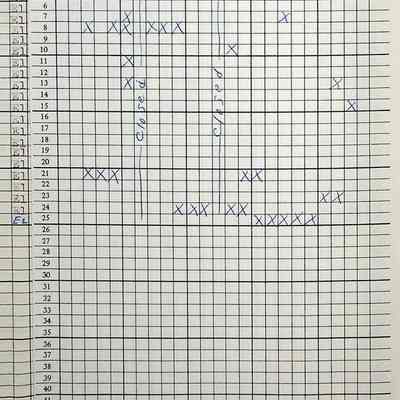 6
7 X X
8 X X X X X X
9
10 X
11 X
12
13 X X
14
15 X
16
17
18
19
20
21 X X X X X
22
23 X X
24 X X X X X
25 X X X X X
26
27
28
29
30
31
32
33
34
35
36
37
38
39
40
Closed
Closed
EL